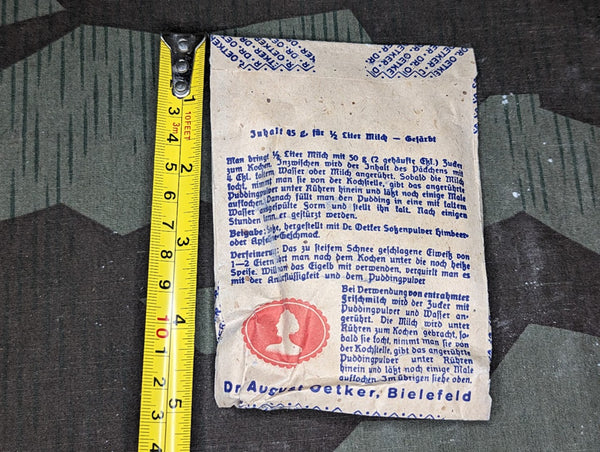 R. OETKER · DR. OETKER · DR. OETKER
Inhalt 45 g für ½ Liter Milch – Gefärbt
Man bringt ½ Liter Milch mit 50 g (2 gehäufte Eßl.) Zucker
zum Kochen. Inzwischen wird der Inhalt des Päckchens mit
4 Eßl. kaltem Wasser oder Milch angerührt. Sobald die Milch
kocht, nimmt man sie von der Kochstelle, gibt das angerührte
Puddingpulver unter Rühren hinein und läßt noch einige Male
aufkochen. Danach füllt man den Pudding in eine mit kaltem
Wasser ausgespülte Form und stellt ihn kalt. Nach einigen
Stunden kann er gestürzt werden.
Beigabe: Soße, hergestellt mit Dr. Oetker Soßenpulver Himbeer-
oder Geschmack.
Verfeinerung: Das zu steifem Schnee geschlagene Eiweiß von
1–2 Eiern man nach dem Kochen unter die noch heiße
Speise. Will man das Eigelb mit verwenden, verquirlt man es
mit der Anrührflüssigkeit und dem Puddingpulver
Bei Verwendung von entrahmter
Frischmilch wird der Zucker mit
Puddingpulver und Wasser an-
gerührt. Die Milch wird unter
Rühren zum Kochen gebracht, so-
bald sie kocht, nimmt man sie von
der Kochstelle, gibt das angerührte
Puddingpulver unter Rühren
hinein und läßt noch einige Male
aufkochen. Im übrigen siehe oben.
Dr. August Oetker, Bielefeld
1
2
3
4
5
3m
10FEET
3
4
5
6
7
8
9
10
1
2
3